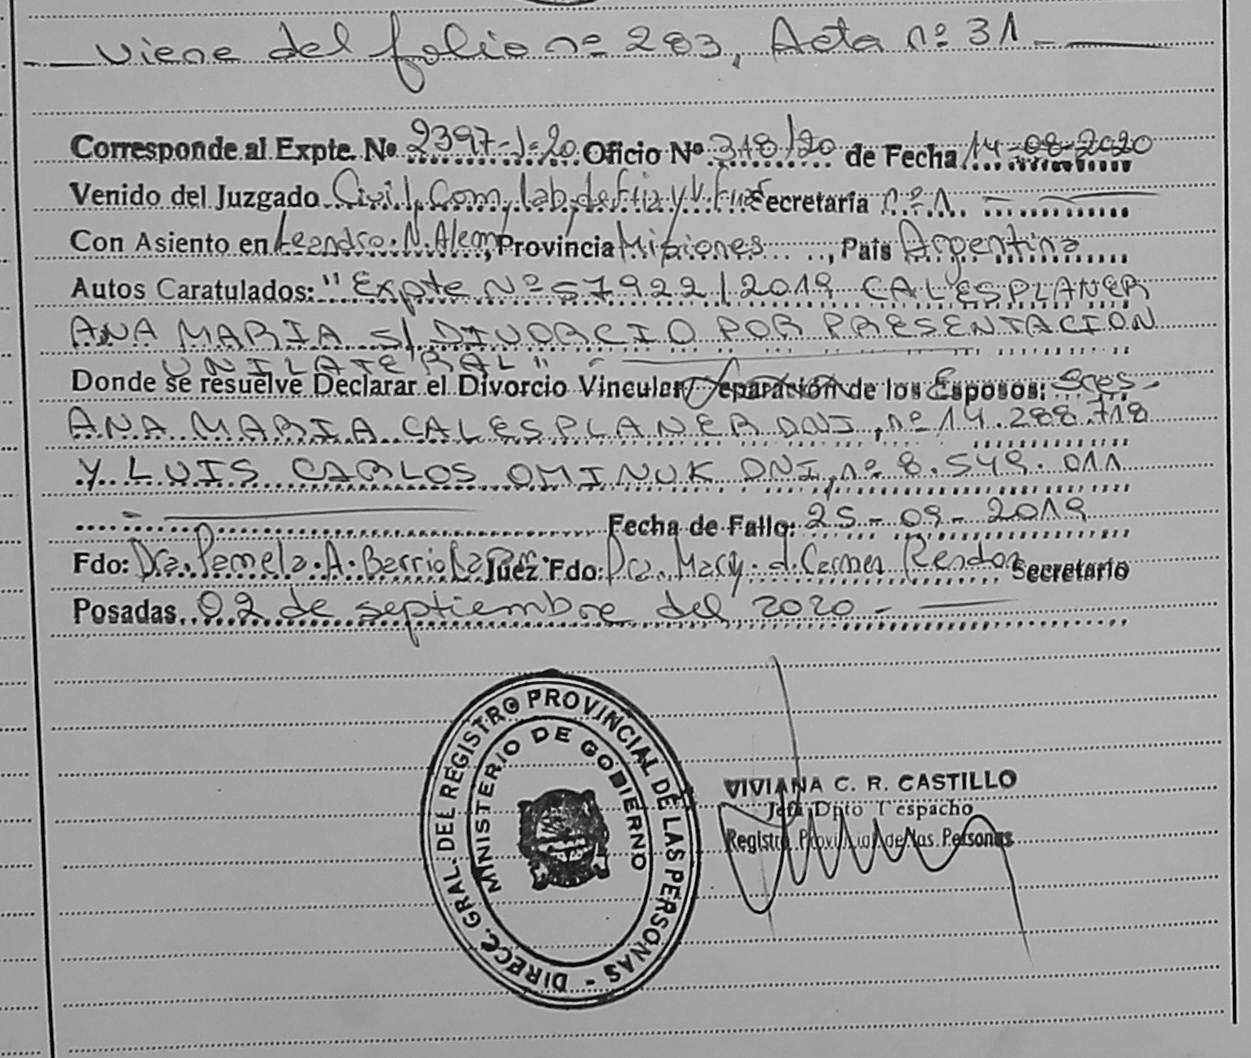 viene del folio nº 283, Acta nº 31
Corresponde al Expte. Nº 2397-J-20 Oficio Nº 318/20 de Fecha 14-08-2020
Venido del Juzgado Civil, Com, lab, de flia y V. Fliar Secretaría nº 1.
Con Asiento en Leandro. N. Alem, Provincia Misiones, País Argentina
Autos Caratulados: "Expte Nº 57922/2019 CALESPLANER
ANA MARIA S/ DIVORCIO POR PRESENTACION
UNILATERAL"
Donde se resuelve Declarar el Divorcio Vincular/Separación de los Esposos: Sres-
ANA MARIA CALESPLANER DNI, nº 14.288.718
Y LUIS CARLOS OMINUK DNI, nº 8.549.011
Fecha de Fallo: 25-09-2019
Fdo: Dra. Pamela. A. Barrios Juez Fdo: Dra. Mary. d. Carmen Rendon Secretario
Posadas, 02 de septiembre del 2020-
DIRECC. GRAL. DEL REGISTRO PROVINCIAL DE LAS PERSONAS -
MINISTERIO DE GOBIERNO
VIVIANA C. R. CASTILLO
Jefa Dpto Despacho
Registro Provincial de las Personas